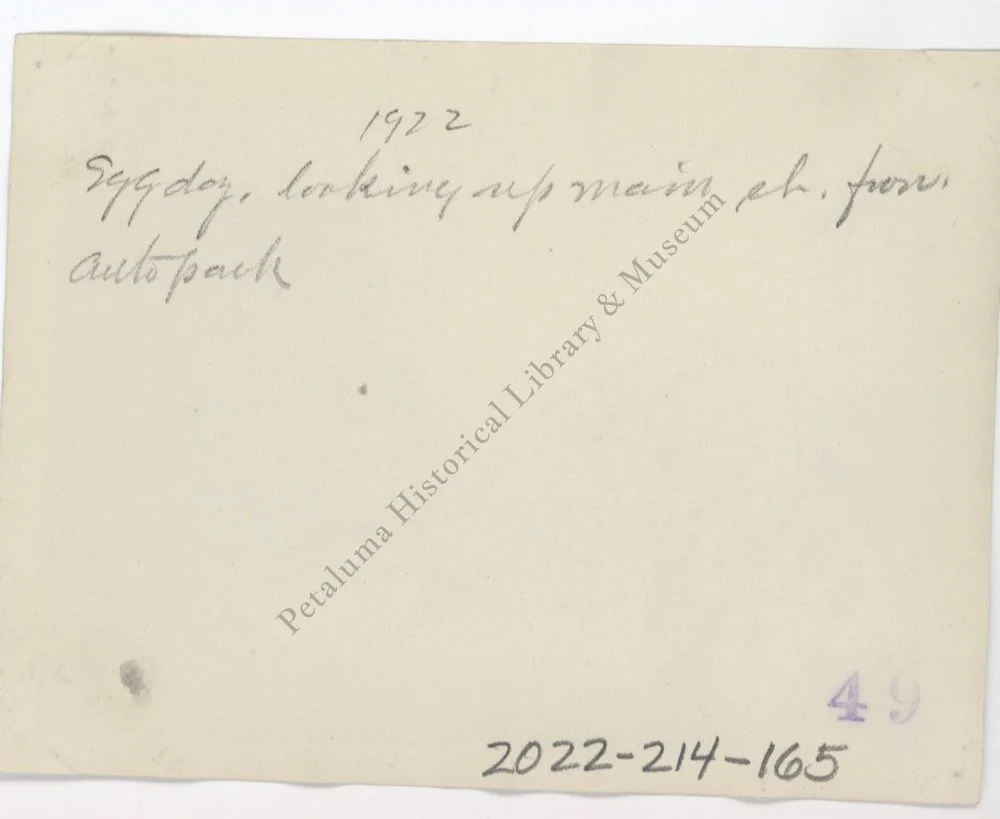 1922
Eggday, looking up main st. from
auto park
Petaluma Historical Library & Museum
49
2022-214-165